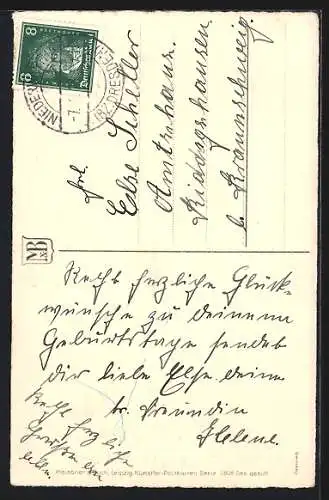 8 BEETHOVEN 8
Deutsches Reich
NIEDER
Frl.
Else Scheller
Amtshaus
Riddagshausen
b. Braunschweig.
MB
Recht herzliche Glück-
wünsche zu deinem
Geburtstage sendet
dir liebe Else deine
tr. Freundin
Helene.
Recht herzliche
Leipzig, Künstler-Postkarten Serie Ges. gesch.